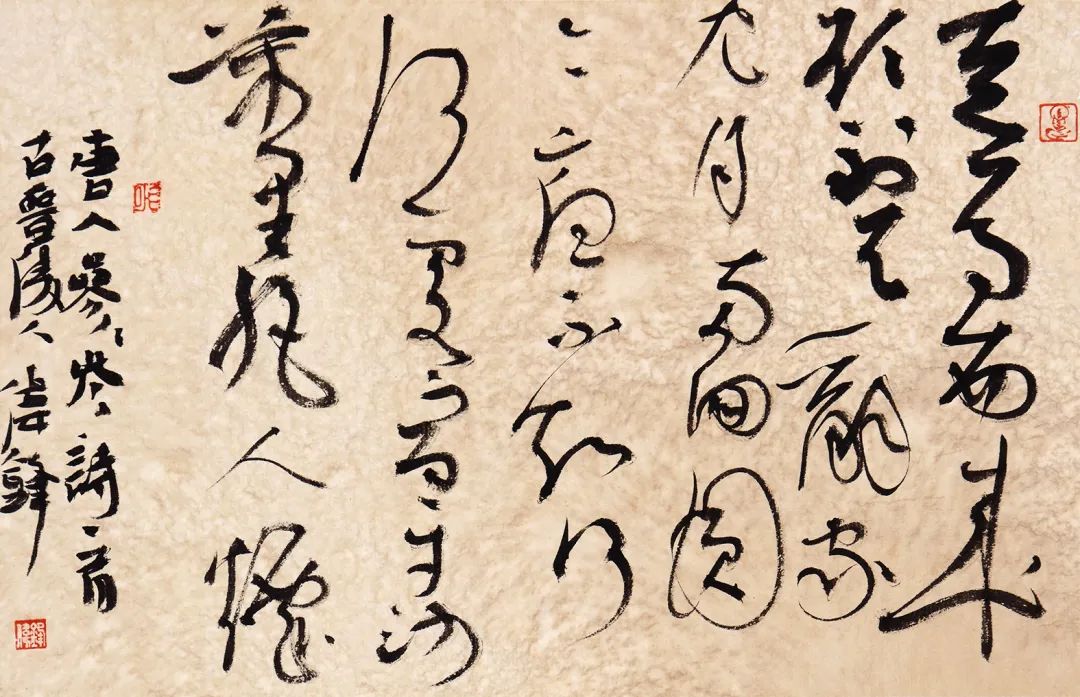 走馬西来
欲到天辭家
见月两回圆
今夜不知何
處宿平沙
萬里絕人煙
唐人岑参詩一首
古晉陵人偉鋒